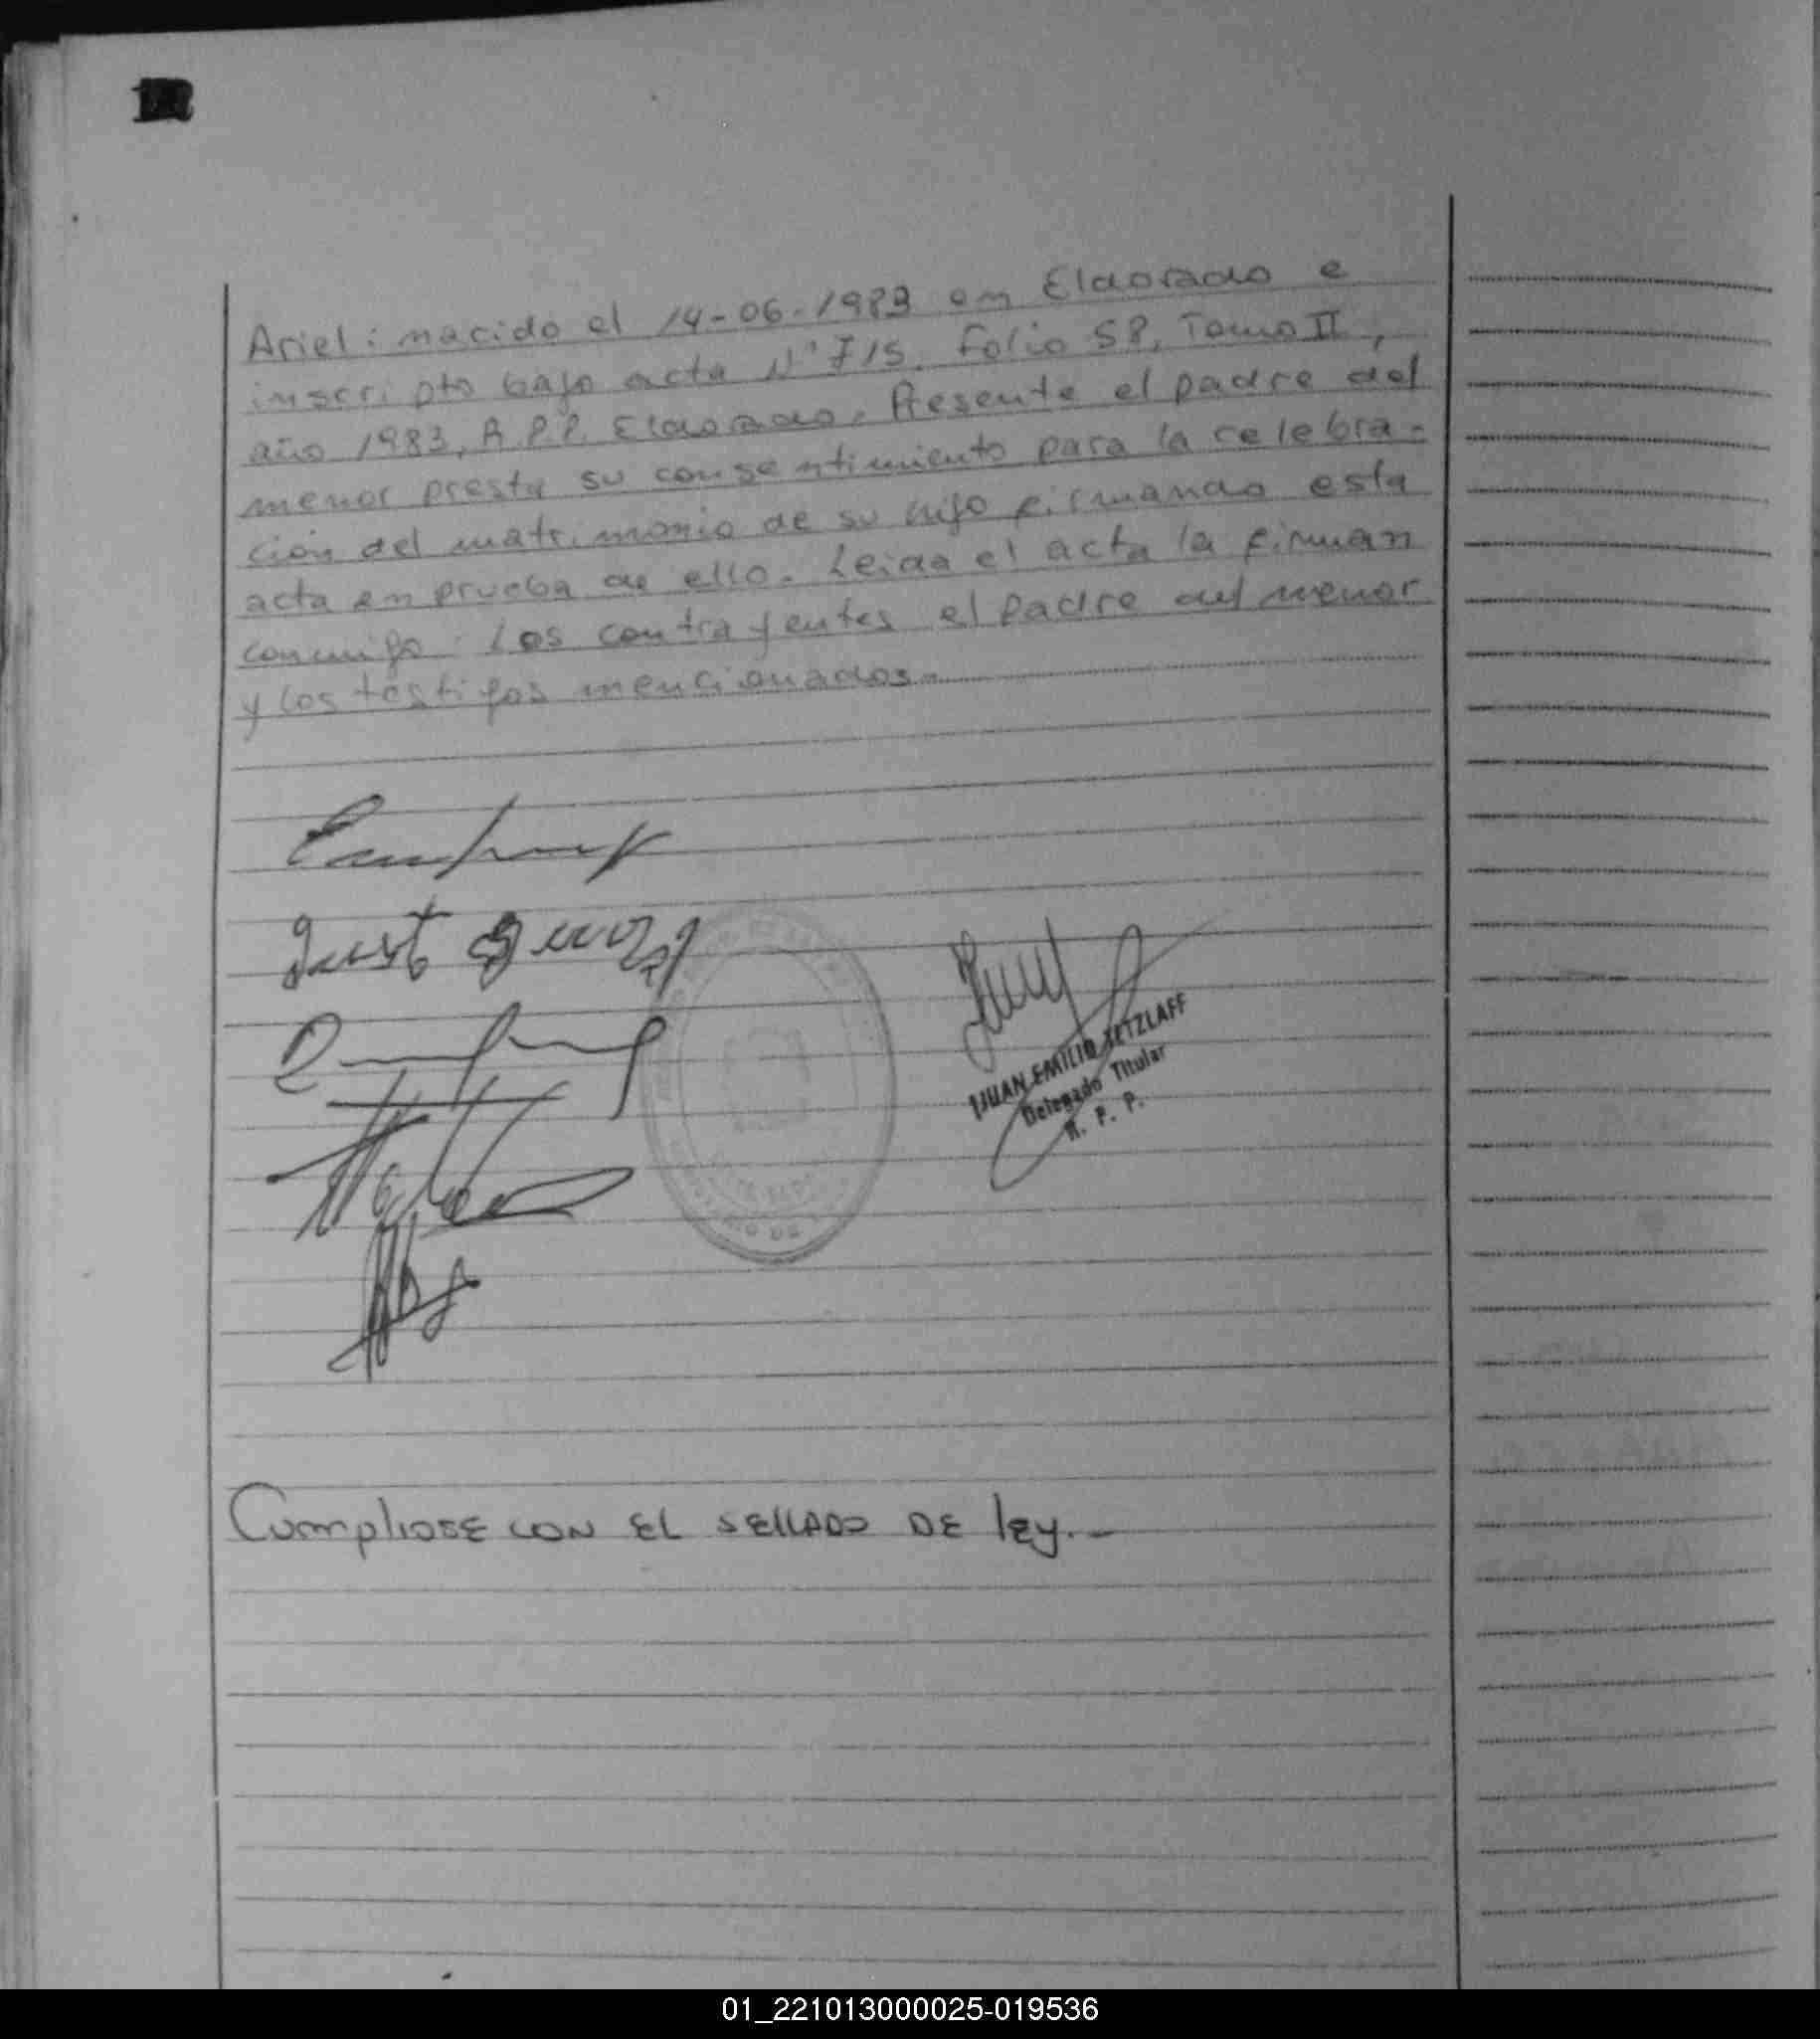 Ariel: nacido el 14-06-1983 en Eldorado e
inscripto bajo acta Nº 715, Folio 58, Tomo II,
año 1983, R.P.P. Eldorado. Presente el padre del
menor presta su consentimiento para la celebra-
ción del matrimonio de su hijo firmando esta
acta en prueba de ello. Leida el acta la firman
conmigo: Los contrayentes el padre del menor
y los testigos mencionados.-
JUAN EMILIO TETZLAFF
Delegado Titular
R. P. P.
Cumpliose con EL SELLADO DE ley.-
01_221013000025-019536